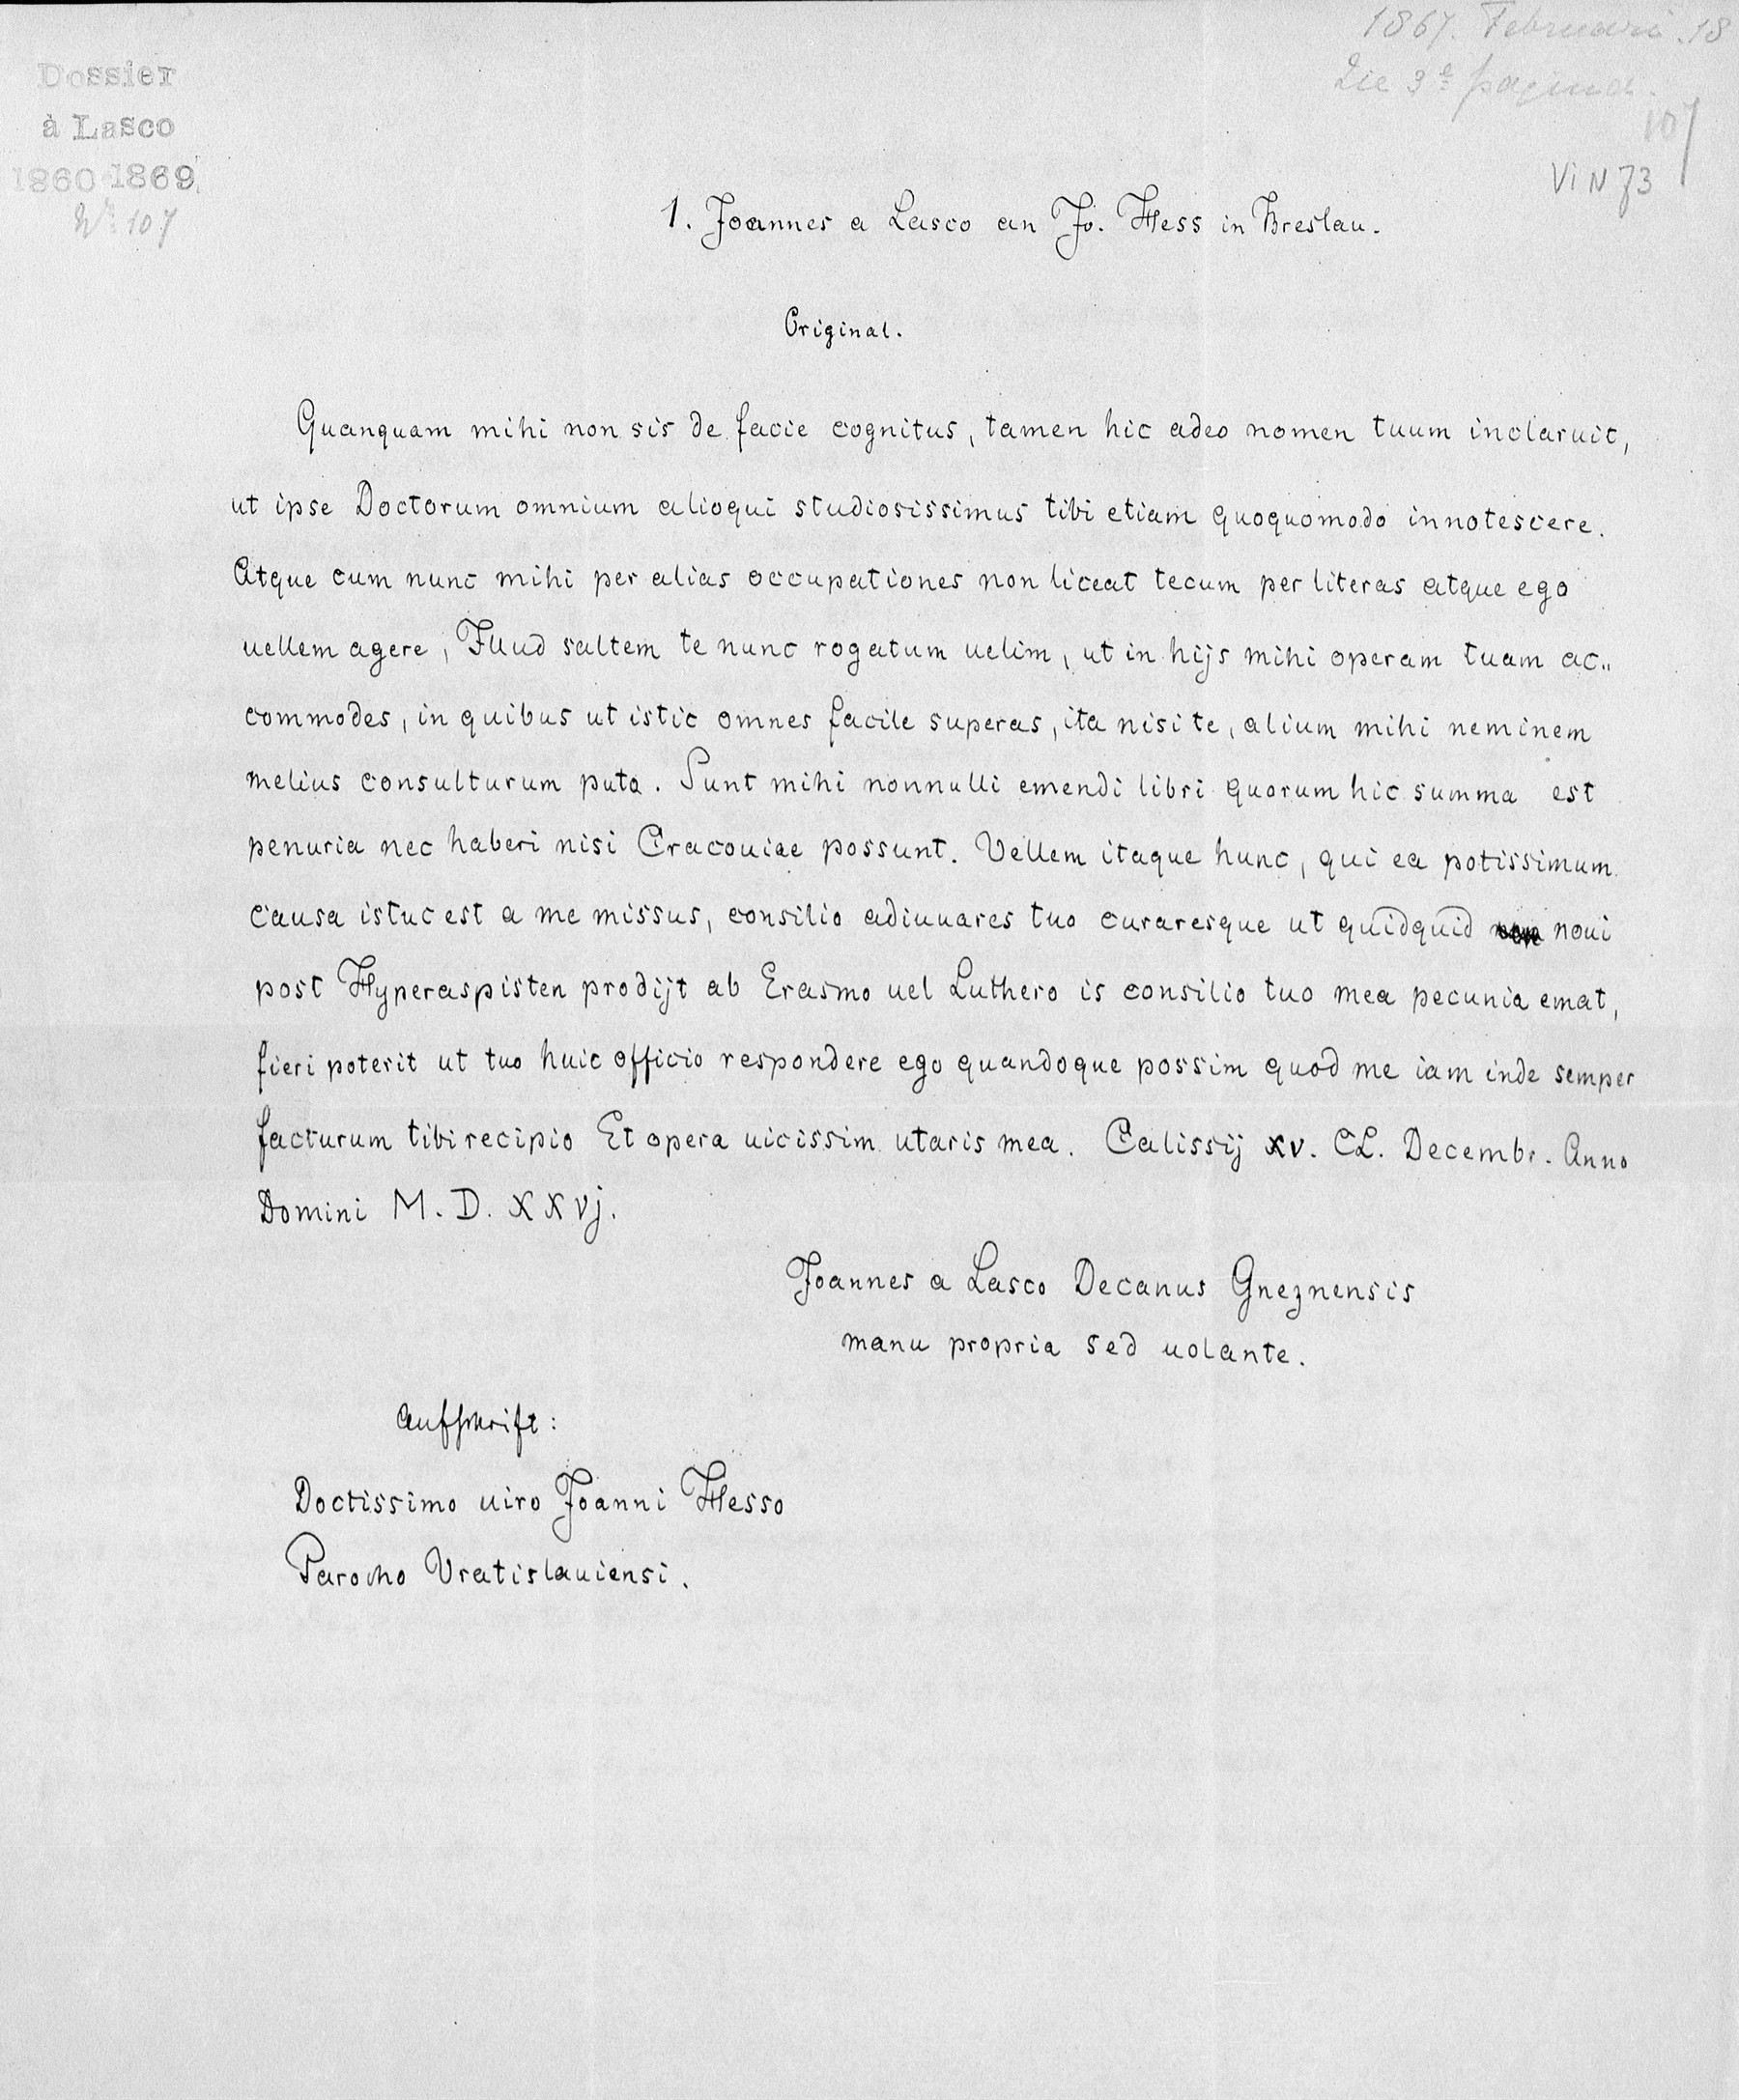 1867. Februari. 18
Zie 3e pagina.
107
Dossier
à Lasco
1860-1869.
No 107
VI N 73
1. Joannes a Lasco an Jo. Hess in Breslau.
Original.
Quanquam mihi non sis de facie cognitus, tamen hic adeo nomen tuum inclaruit,
ut ipse Doctorum omnium alioqui studiosissimus tibi etiam quoquomodo innotescere.
Atque cum nunc mihi per alias occupationes non liceat tecum per literas atque ego
uellem agere, Illud saltem te nunc rogatum uelim, ut in hijs mihi operam tuam ac„
commodes, in quibus ut istic omnes facile superas, ita nisi te, alium mihi neminem
melius consulturum puto. Sunt mihi nonnulli emendi libri quorum hic summa est
penuria nec haberi nisi Cracouiae possunt. Vellem itaque hunc, qui ea potissimum
causa istuc est a me missus, consilio adiuuares tuo curaresque ut quidquid noui
post Hyperaspisten prodijt ab Erasmo uel Luthero is consilio tuo mea pecunia emat,
fieri poterit ut tuo huic officio respondere ego quandoque possim quod me iam inde semper
facturum tibi recipio Et opera uicissim utaris mea. Calissij xv. CL. Decembr. Anno
Domini M. D. XXVj.
Joannes a Lasco Decanus Gneznensis
manu propria sed uolante.
Aufschrift:
Doctissimo uiro Joanni Hesso
Parocho Vratislauiensi.